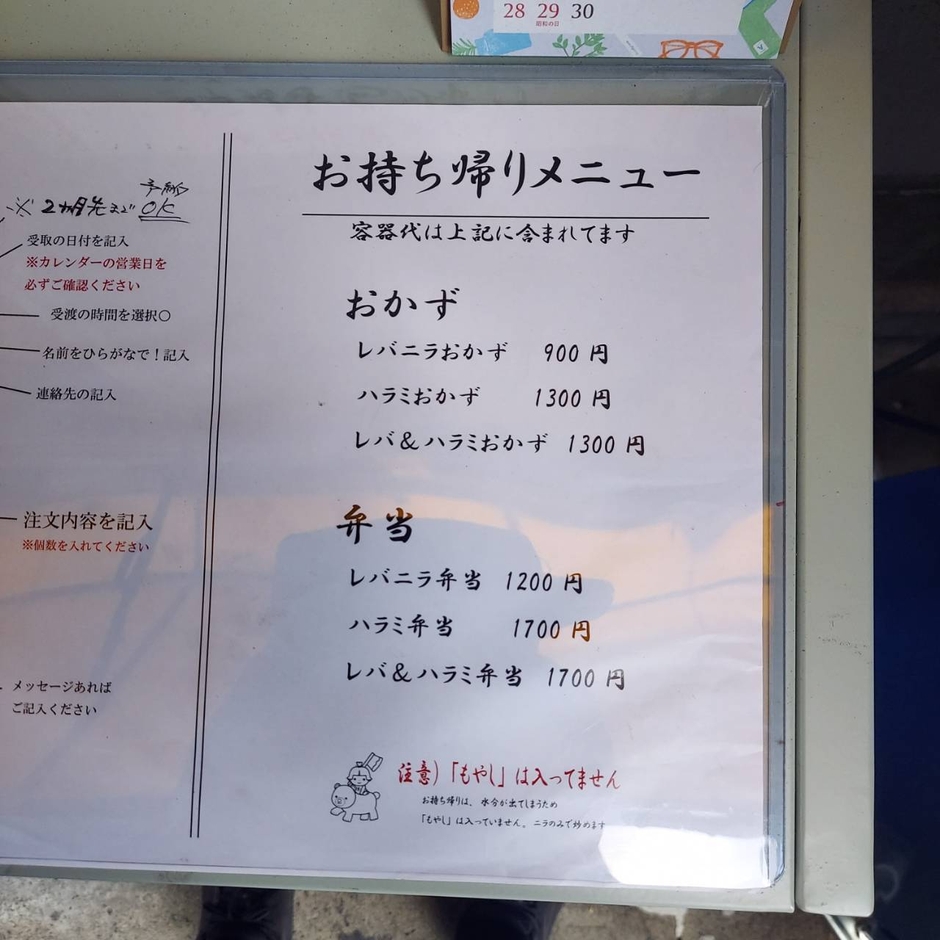 28 29 30
昭和の日
※2ヶ月先まで
予約
OK
受取の日付を記入
※カレンダーの営業日を
必ずご確認ください
受渡の時間を選択○
名前をひらがなで!記入
連絡先の記入
注文内容を記入
※個数を入れてください
メッセージあれば
ご記入ください
お持ち帰りメニュー
容器代は上記に含まれてます
おかず
レバニラおかず 900円
ハラミおかず 1300円
レバ&ハラミおかず 1300円
弁当
レバニラ弁当 1200円
ハラミ弁当 1700円
レバ&ハラミ弁当 1700円
注意)「もやし」は入ってません
お持ち帰りは、水分が出てしまうため
「もやし」は入っていません。ニラのみで炒めます